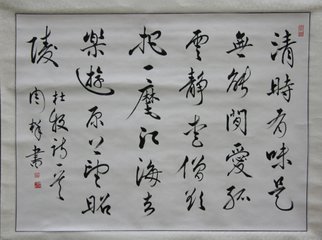 清時有味是
無能閒愛孤
雲靜愛僧欲
把一麾江海去
樂遊原上望昭
陵
杜牧詩一首
書